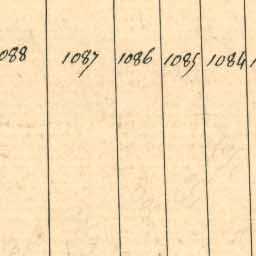 088 1087 1086 1085 1084 1